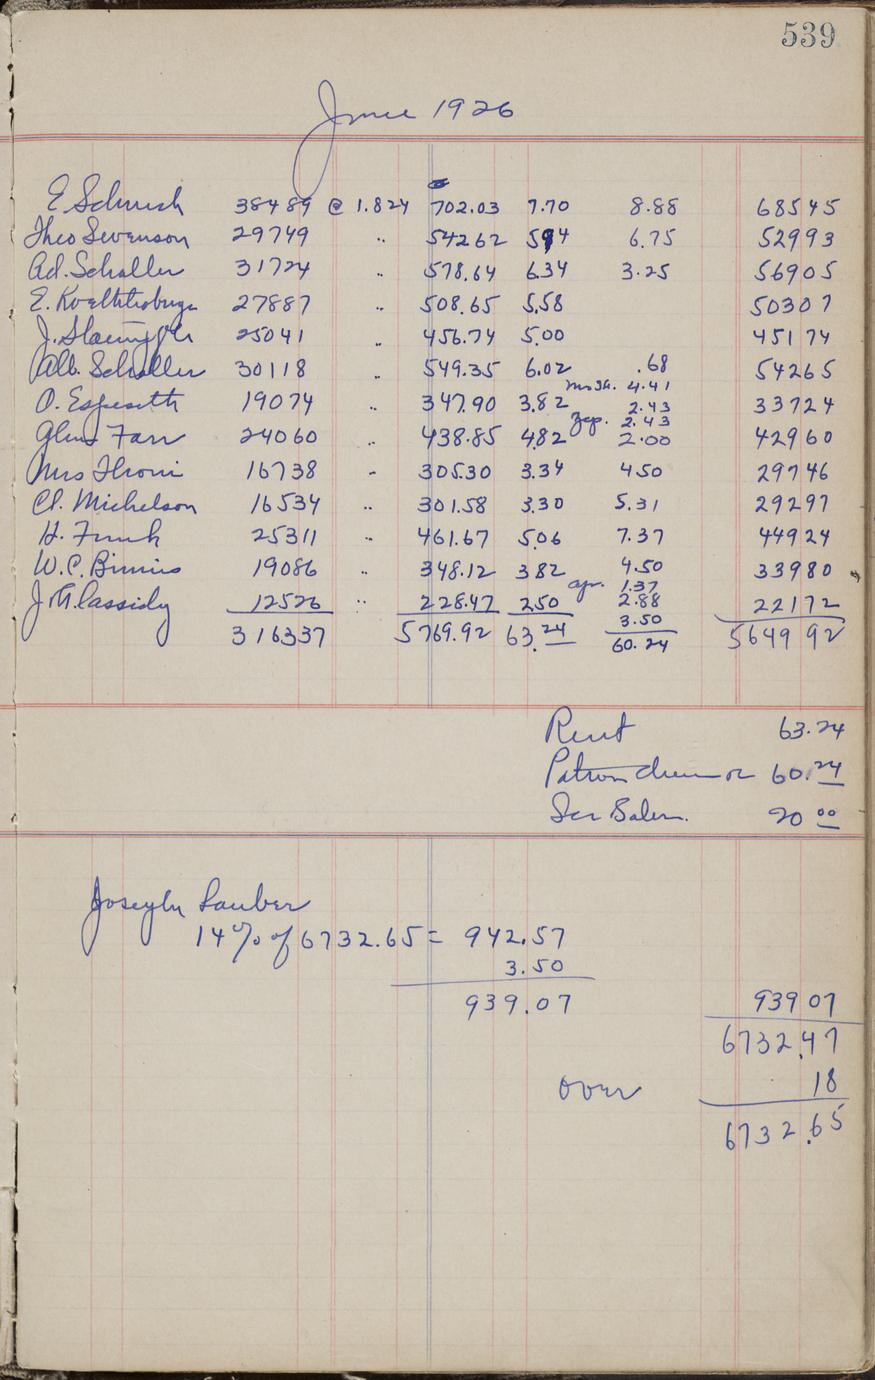 539
June 1926
E Schmek 38489 @ 1.824 702.03 7.70 8.88 68545
Theo Sevenson 29749 " 54262 594 6.75 52993
Ad. Schaller 31724 " 578.64 634 3.25 56905
E. 27887 " 508.65 5.58 50307
J. 25041 " 456.74 5.00 45174
Alb. Schaller 30118 " 549.35 6.02 .68 54265
Mrs Th. 4.41
O. Espeseth 19074 " 347.90 3.82 2.43 33724
Zep. 2.43
Glenn Farr 24060 " 438.85 482 2.00 42960
Mrs Throni 16738 " 305.30 3.34 450 29746
Cl. Michelson 16534 " 301.58 3.30 5.31 29297
H. Funk 25311 " 461.67 5.06 7.37 44924
W.C. Binnies 19086 " 348.12 382 4.50 33980
apr. 1.37
J M Cassidy 12526 " 228.47 250 2.88 22172
3.50
316337 5769.92 63.24 60.24 5649 92
Rent 63.24
Patron 60.24
Salem. 20 00
Joseph Lauber
14% of 6732.65 = 942.57
3.50
939.07 939 07
6732.47
over 18
6732.65